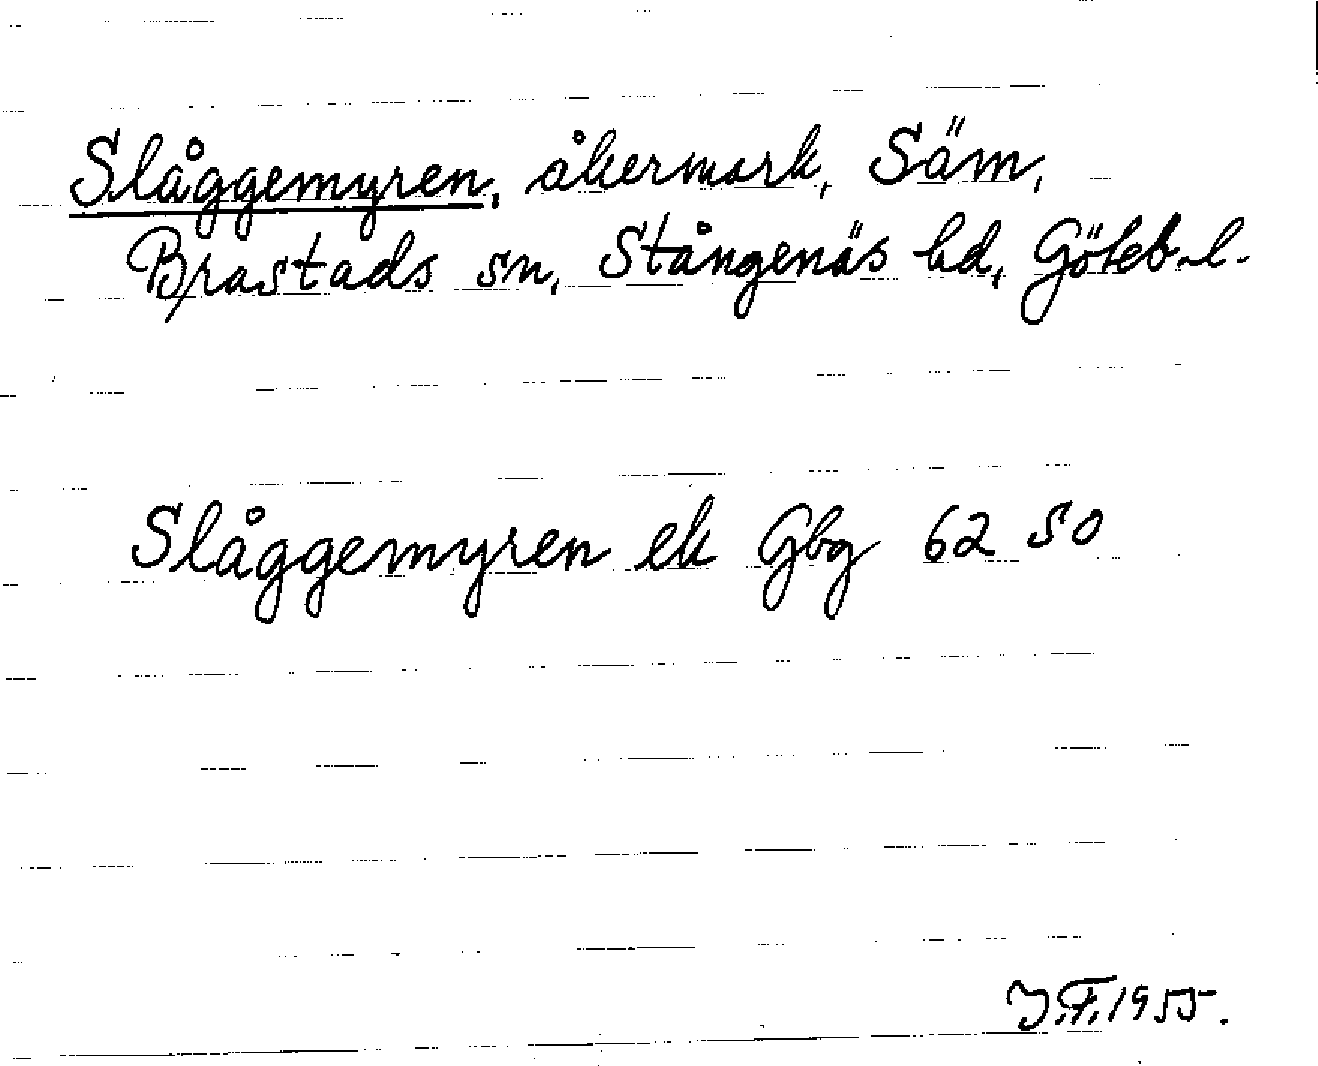 Slåggemyren, åkermark, Säm,
Brastads sn, Stångenäs hd, Göteb. l.
Slåggemyren ek Gbg 62 50
J.F. 1955.